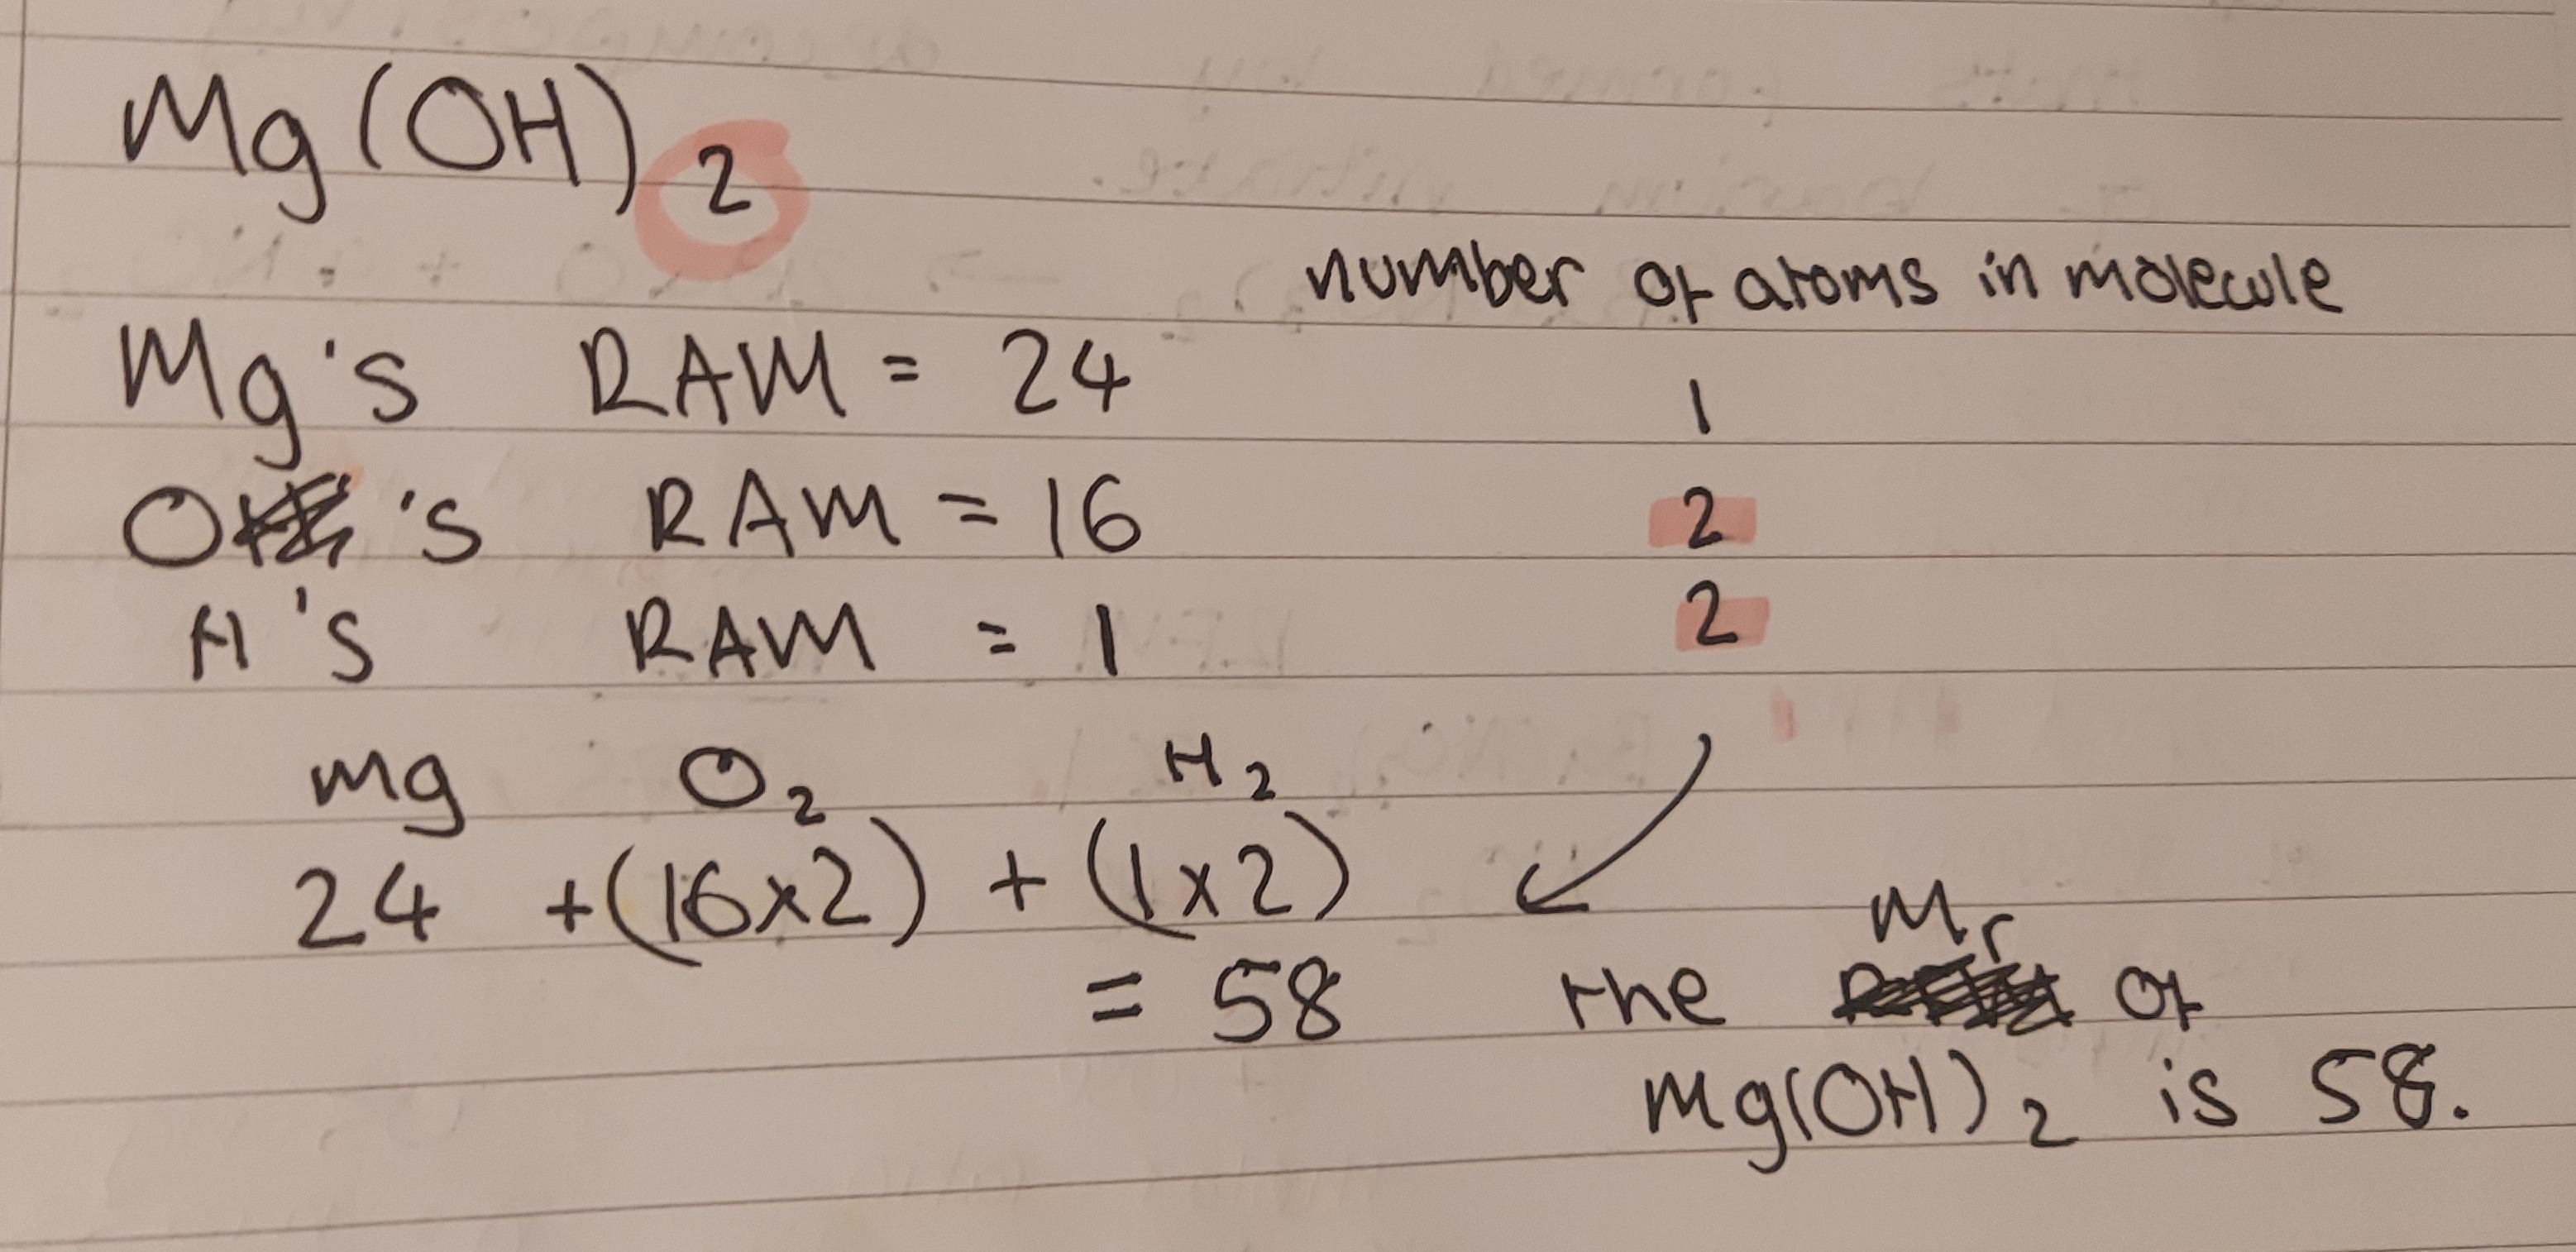 Mg(OH)₂
number of atoms in molecule
Mg's RAM = 24 1
O's RAM = 16 2
H's RAM = 1 2
Mg O₂ H₂
24 + (16×2) + (1×2)
= 58 the Mr of
Mg(OH)₂ is 58.